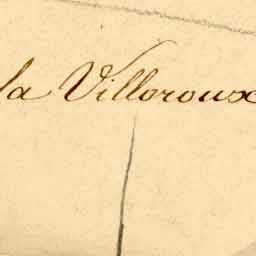 la Villoroux